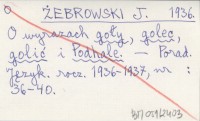 ŻEBROWSKI J. 1936.
O wyrazach goły, golec,
golić i Podhale. — Porad.
Język. rocz. 1936-1937, nr :
36-40.